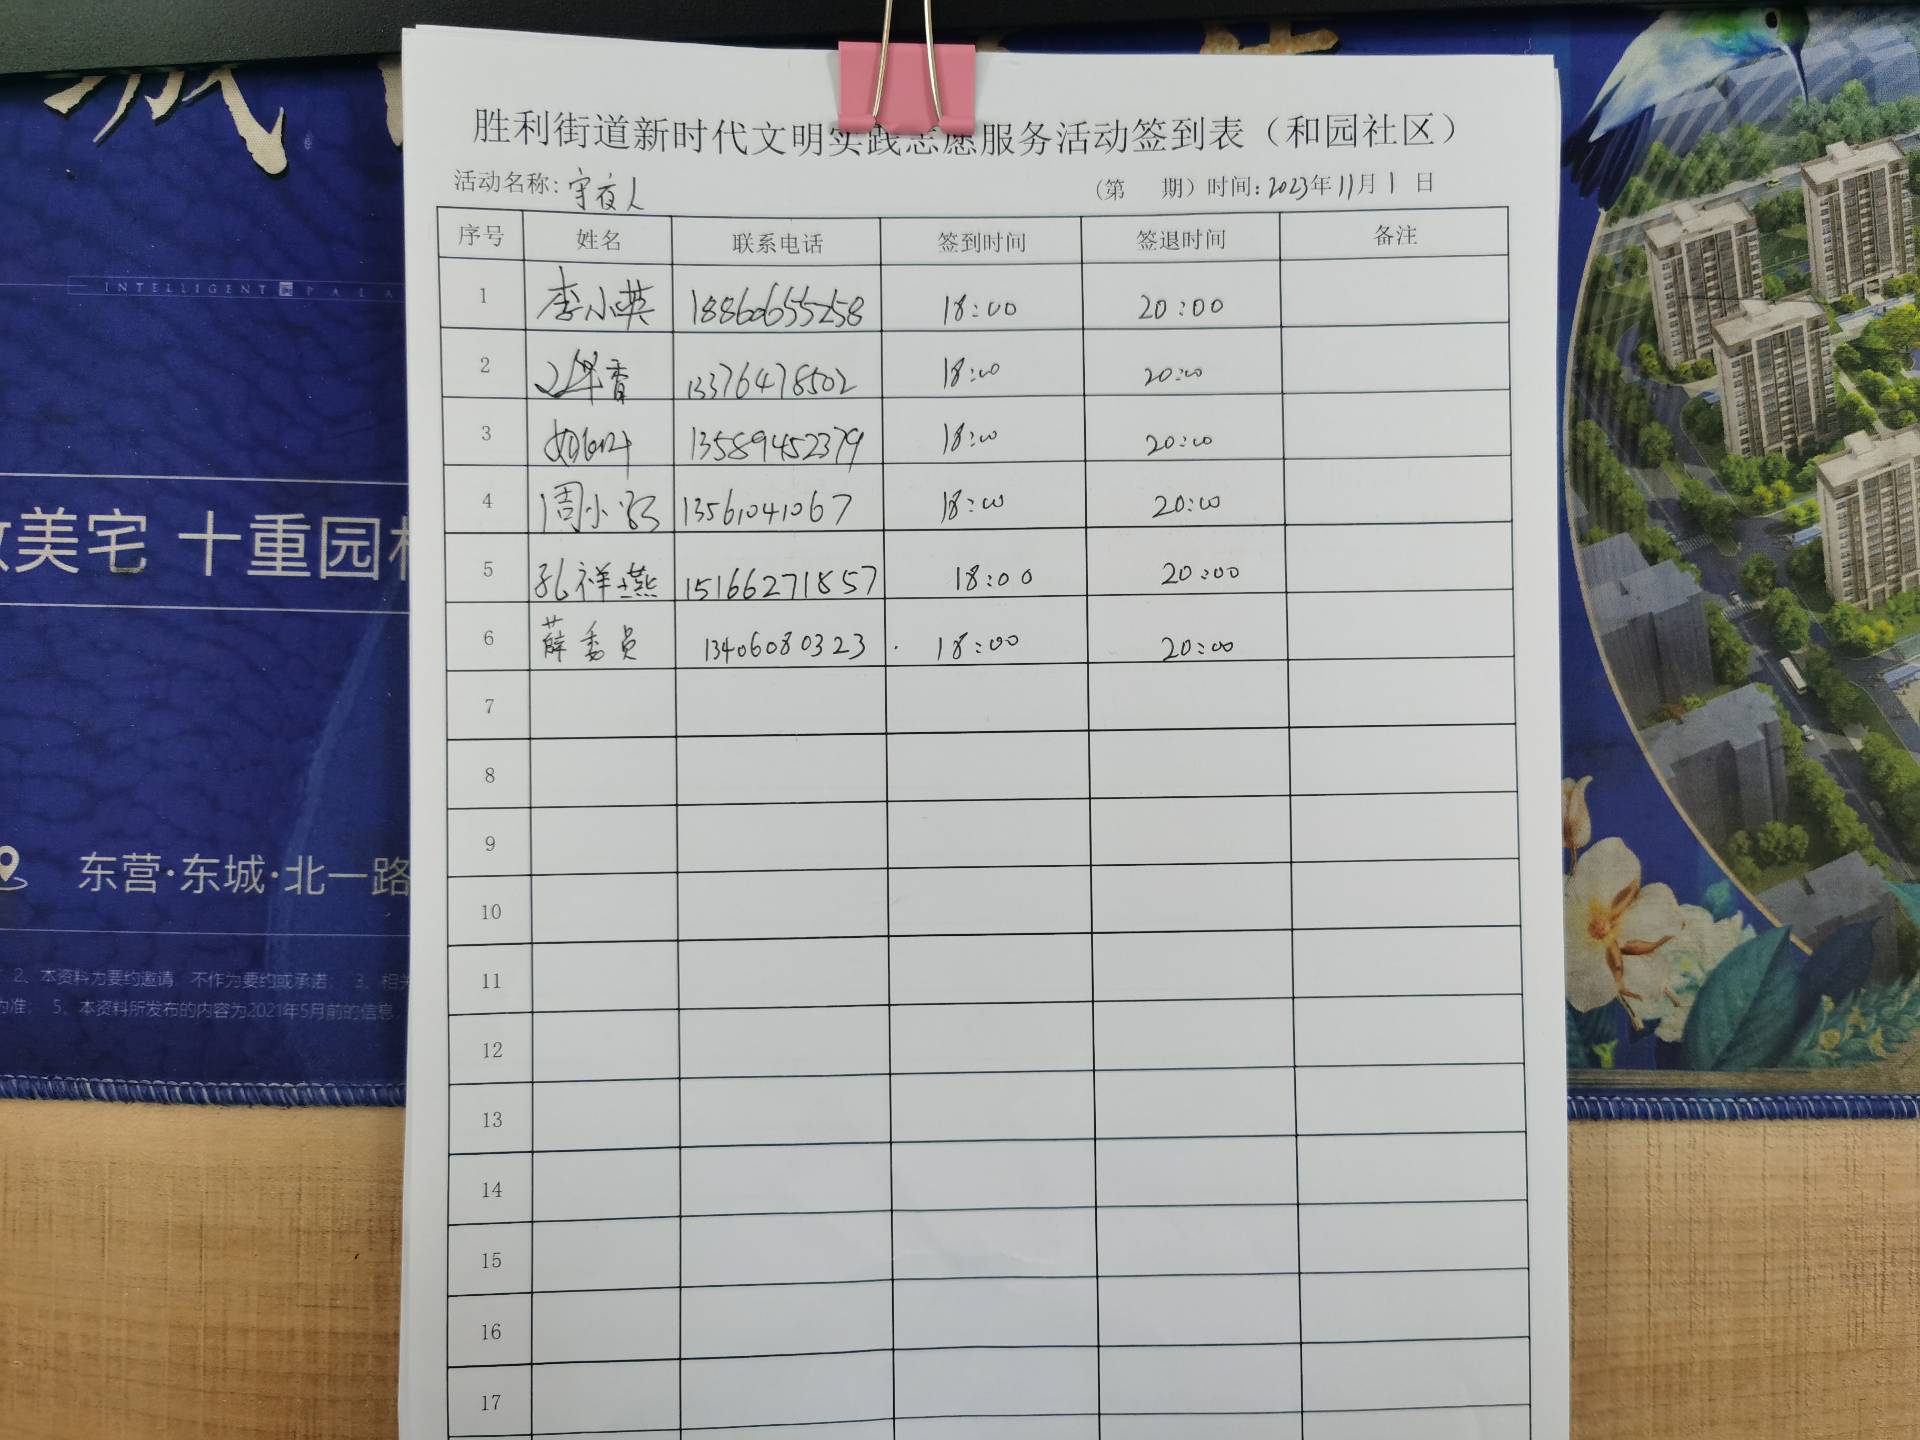 城
INTELLIGENT PALA
美宅 十重园林
东营·东城·北一路
2、本资料为要约邀请 不作为要约或承诺； 3、相关
为准； 5、本资料所发布的内容为2021年5月前的信息，
胜利街道新时代文明实践志愿服务活动签到表（和园社区）
活动名称：守夜人 （第 期）时间：2023年11月1日
序号 姓名 联系电话 签到时间 签退时间 备注
1 李小英 18860655258 18:00 20:00
2 13376478502 18:00 20:00
3 13589452379 18:00 20:00
4 周小 13561041067 18:00 20:00
5 孔祥燕 15166271857 18:00 20:00
6 薛委员 13406080323 18:00 20:00
7
8
9
10
11
12
13
14
15
16
17